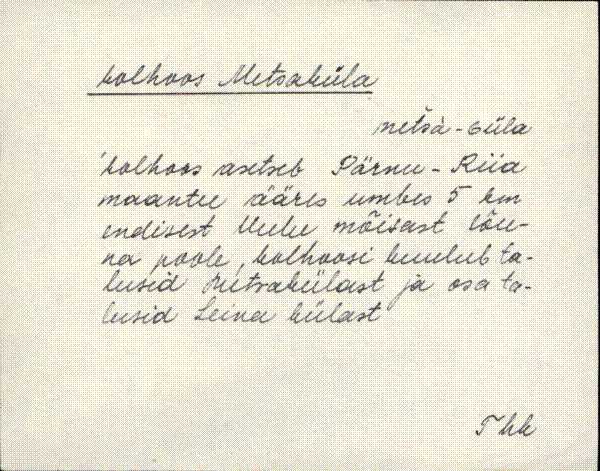 kolhoos Metsaküla
metsà-Güla
kolhoos asetseb Pärnu-Riia
maantee ääres umbes 5 km
endisest Uulu mõisast lõu-
na poole, kolhoosi kuulub ta-
lusid Metsakülast ja osa ta-
lusid Leina külast
Thk